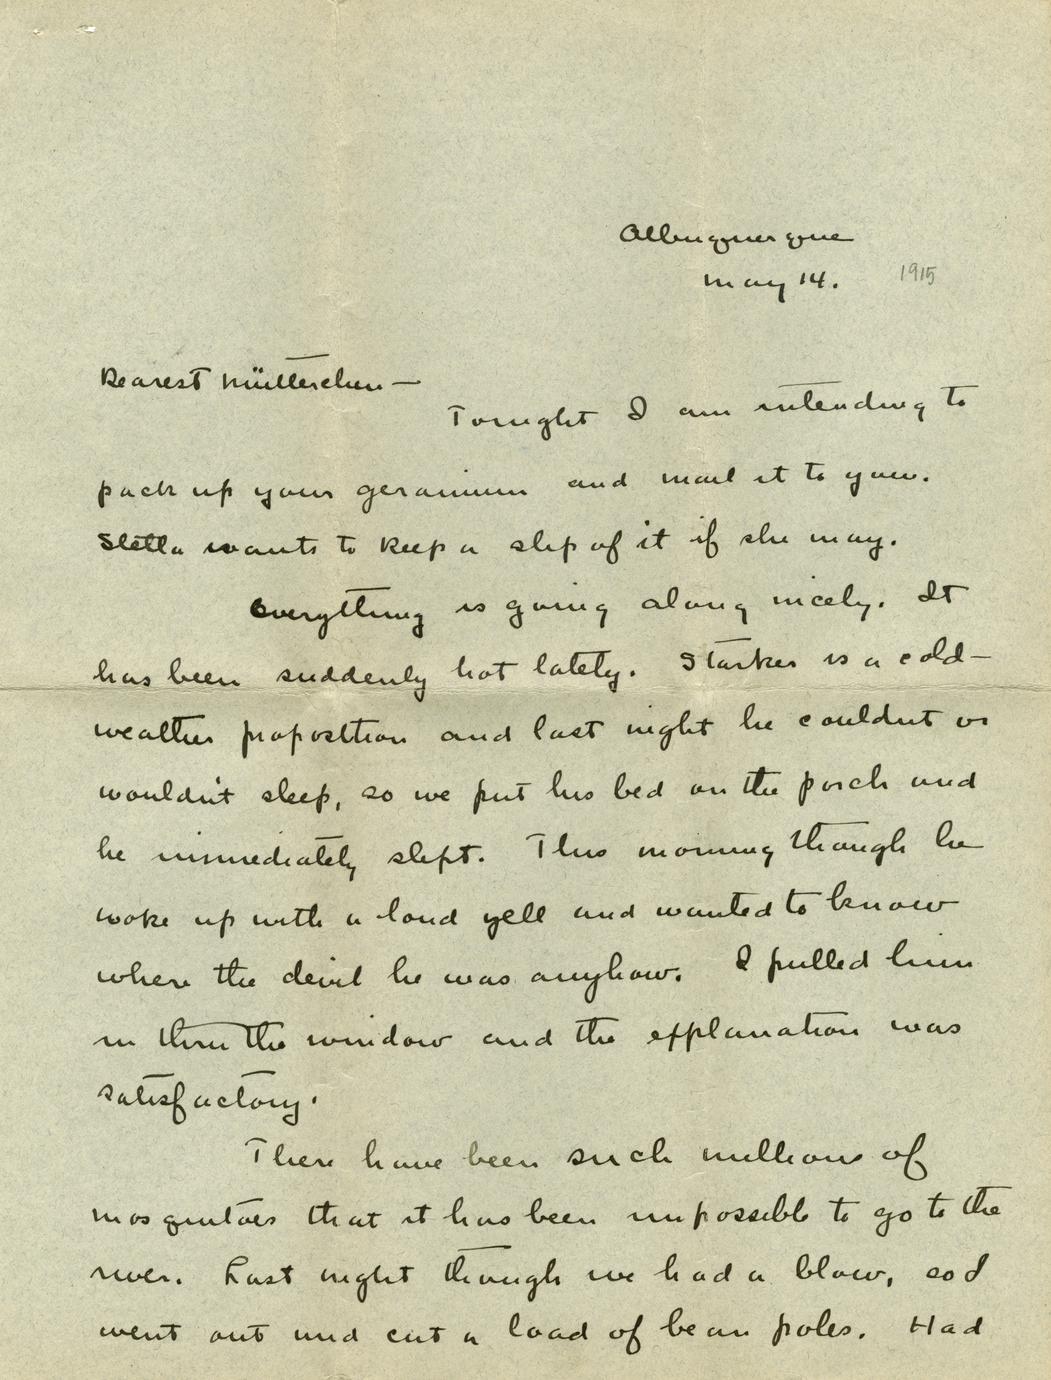 Albuquerque
May 14.
1915
Dearest Mütterchen —
Tonight I am intending to
pack up your geranium and mail it to you.
Stella wants to keep a slip of it if she may.
Everything is going along nicely. It
has been suddenly hot lately. Starker is a cold-
weather proposition and last night he couldnt or
wouldn't sleep, so we put his bed on the porch and
he immediately slept. This morning though he
woke up with a loud yell and wanted to know
where the devil he was anyhow. I pulled him
in thru the window and the explanation was
satisfactory.
There have been such millions of
mosquitoes that it has been impossible to go to the
river. Last night though we had a blow, so I
went out and cut a load of bean poles. Had